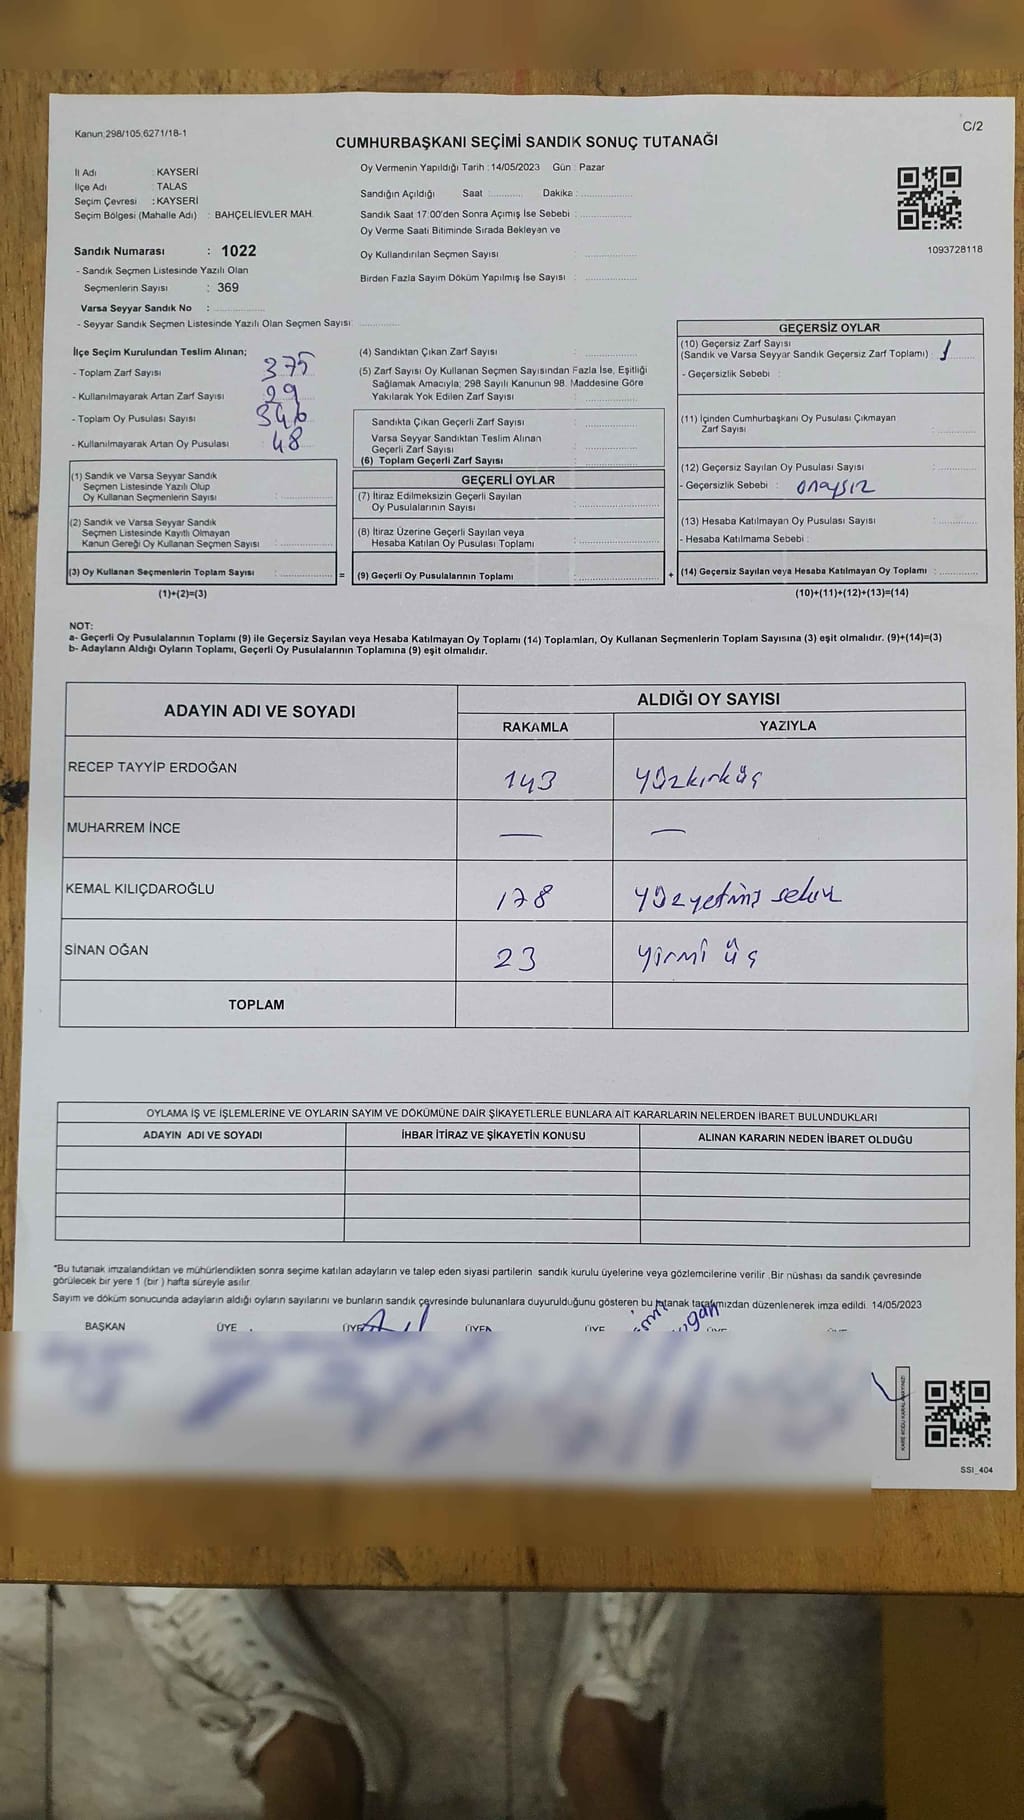 Kanun;298/105,6271/18-1
C/2
CUMHURBAŞKANI SEÇİMİ SANDIK SONUÇ TUTANAĞI
İl Adı : KAYSERİ
İlçe Adı : TALAS
Seçim Çevresi : KAYSERİ
Seçim Bölgesi (Mahalle Adı) : BAHÇELİEVLER MAH.
Sandık Numarası : 1022
- Sandık Seçmen Listesinde Yazılı Olan
Seçmenlerin Sayısı : 369
Varsa Seyyar Sandık No :
- Seyyar Sandık Seçmen Listesinde Yazılı Olan Seçmen Sayısı:
Oy Vermenin Yapıldığı Tarih : 14/05/2023 Gün : Pazar
Sandığın Açıldığı Saat : Dakika :
Sandık Saat 17:00'den Sonra Açımış İse Sebebi :
Oy Verme Saati Bitiminde Sırada Bekleyen ve
Oy Kullandırılan Seçmen Sayısı :
Birden Fazla Sayım Döküm Yapılmış İse Sayısı :
1093728118
İlçe Seçim Kurulundan Teslim Alınan;
- Toplam Zarf Sayısı : 375
- Kullanılmayarak Artan Zarf Sayısı : 29
- Toplam Oy Pusulası Sayısı : 346
- Kullanılmayarak Artan Oy Pusulası : 48
(1) Sandık ve Varsa Seyyar Sandık
Seçmen Listesinde Yazılı Olup
Oy Kullanan Seçmenlerin Sayısı :
(2) Sandık ve Varsa Seyyar Sandık
Seçmen Listesinde Kayıtlı Olmayan
Kanun Gereği Oy Kullanan Seçmen Sayısı :
(3) Oy Kullanan Seçmenlerin Toplam Sayısı :
(1)+(2)=(3)
(4) Sandıktan Çıkan Zarf Sayısı :
(5) Zarf Sayısı Oy Kullanan Seçmen Sayısından Fazla İse, Eşitliği
Sağlamak Amacıyla; 298 Sayılı Kanunun 98. Maddesine Göre
Yakılarak Yok Edilen Zarf Sayısı :
Sandıkta Çıkan Geçerli Zarf Sayısı :
Varsa Seyyar Sandıktan Teslim Alınan
Geçerli Zarf Sayısı :
(6) Toplam Geçerli Zarf Sayısı :
GEÇERLİ OYLAR
(7) İtiraz Edilmeksizin Geçerli Sayılan
Oy Pusulalarının Sayısı :
(8) İtiraz Üzerine Geçerli Sayılan veya
Hesaba Katılan Oy Pusulası Toplamı :
= (9) Geçerli Oy Pusulalarının Toplamı :
GEÇERSİZ OYLAR
(10) Geçersiz Zarf Sayısı
(Sandık ve Varsa Seyyar Sandık Geçersiz Zarf Toplamı) : 1
- Geçersizlik Sebebi :
(11) İçinden Cumhurbaşkanı Oy Pusulası Çıkmayan
Zarf Sayısı :
(12) Geçersiz Sayılan Oy Pusulası Sayısı :
- Geçersizlik Sebebi : onaysız
(13) Hesaba Katılmayan Oy Pusulası Sayısı :
- Hesaba Katılmama Sebebi :
+ (14) Geçersiz Sayılan veya Hesaba Katılmayan Oy Toplamı :
(10)+(11)+(12)+(13)=(14)
NOT:
a- Geçerli Oy Pusulalarının Toplamı (9) ile Geçersiz Sayılan veya Hesaba Katılmayan Oy Toplamı (14) Toplamları, Oy Kullanan Seçmenlerin Toplam Sayısına (3) eşit olmalıdır. (9)+(14)=(3)
b- Adayların Aldığı Oyların Toplamı, Geçerli Oy Pusulalarının Toplamına (9) eşit olmalıdır.
ADAYIN ADI VE SOYADI
ALDIĞI OY SAYISI
RAKAMLA YAZIYLA
RECEP TAYYİP ERDOĞAN 143 yüzkırküç
MUHARREM İNCE — —
KEMAL KILIÇDAROĞLU 178 yüzyetmiş sekiz
SİNAN OĞAN 23 yirmi üç
TOPLAM
OYLAMA İŞ VE İŞLEMLERİNE VE OYLARIN SAYIM VE DÖKÜMÜNE DAİR ŞİKAYETLERLE BUNLARA AİT KARARLARIN NELERDEN İBARET BULUNDUKLARI
ADAYIN ADI VE SOYADI İHBAR İTİRAZ VE ŞİKAYETİN KONUSU ALINAN KARARIN NEDEN İBARET OLDUĞU
*Bu tutanak imzalandıktan ve mühürlendikten sonra seçime katılan adayların ve talep eden siyasi partilerin sandık kurulu üyelerine veya gözlemcilerine verilir. Bir nüshası da sandık çevresinde
görülecek bir yere 1 (bir ) hafta süreyle asılır.
Sayım ve döküm sonucunda adayların aldığı oyların sayılarını ve bunların sandık çevresinde bulunanlara duyurulduğunu gösteren bu tutanak tarafımızdan düzenlenerek imza edildi. 14/05/2023
BAŞKAN ÜYE ÜYE ÜYE ÜYE ÜYE
SSI_404